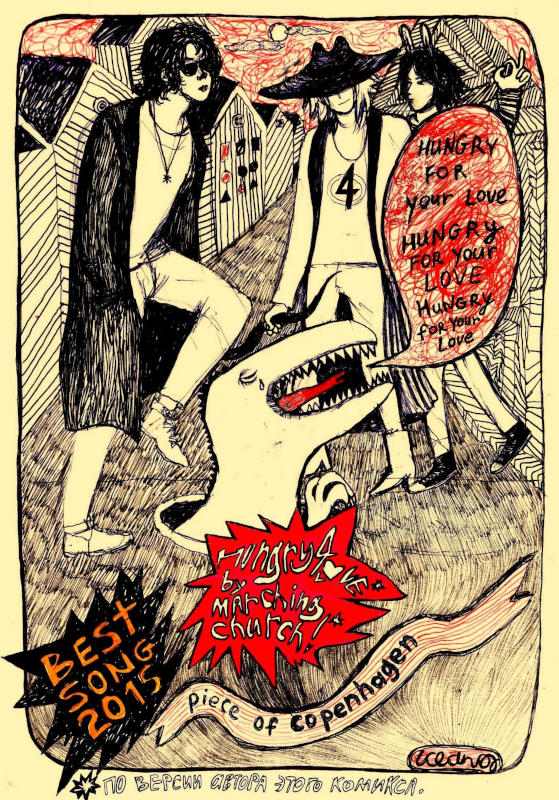 4
HUNGRY
FOR
your Love
HUNGRY
FOR YOUR
LOVE
HUNGRY
for your
Love
Hungry4
LOVE
by
MARCHING
CHURCH!
BEST
SONG
2015
piece of copenhagen
ПО ВЕРСИИ АВТОРА ЭТОГО КОМИКСА.